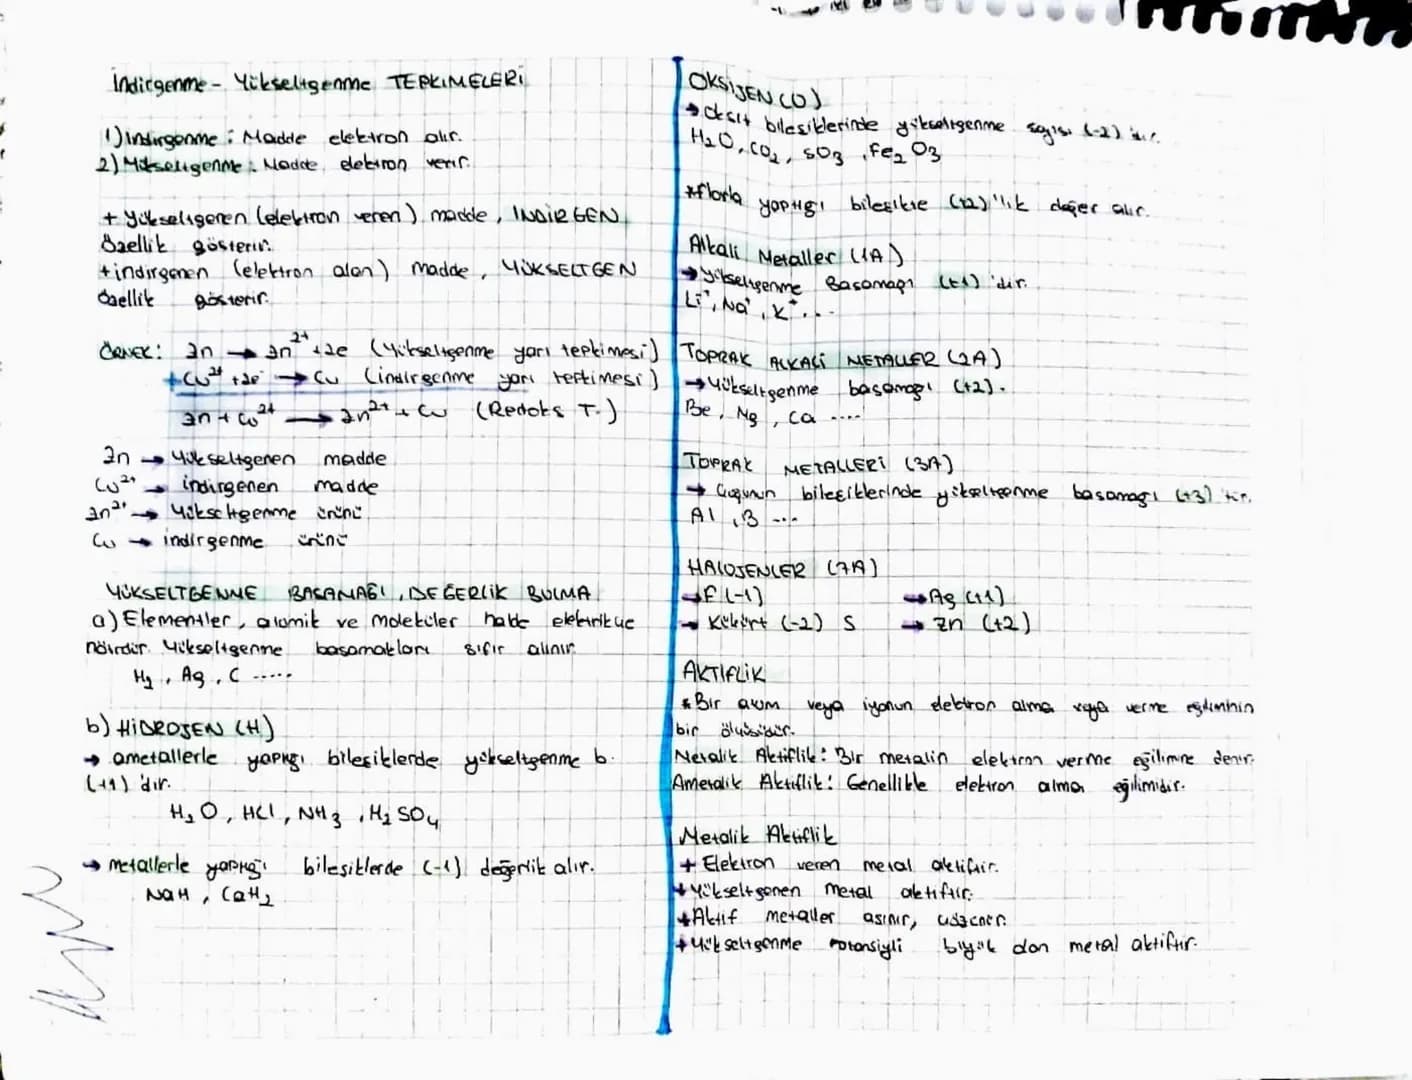 İndirgenme - Yükseltgenme TEPKİMELERİ
1) İndirgenme : Madde elektron alır.
2) Yükseltgenme : Madde elektron verir.
+ Yükseltgenen (elektron veren) madde, İNDİRGEN
özellik gösterir.
+ indirgenen (elektron alan) madde, YÜKSELTGEN
özellik gösterir.
ÖRNEK: Zn → Zn²⁺ +2e (Yükseltgenme yarı tepkimesi)
+ Cu²⁺ +2e⁻ → Cu (indirgenme yarı tepkimesi)
Zn + Cu²⁺ → Zn²⁺ + Cu (Redoks T.)
Zn → Yükseltgenen madde
Cu²⁺ → indirgenen madde
Zn²⁺ → Yükseltgenme ürünü
Cu → indirgenme ürünü
YÜKSELTGENME BASAMAĞI, DEĞERLİK BULMA
a) Elementler, atomik ve moleküler halde elektrikçe
nötrdür. Yükseltgenme basamakları sıfır alınır.
H₂, Ag, C .....
b) HİDROJEN (H)
→ ametallerle yaptığı bileşiklerde yükseltgenme b.
(+1) 'dir.
H₂O, HCl, NH₃, H₂SO₄
→ metallerle yaptığı bileşiklerde (-1) değerlik alır.
NaH, CaH₂
OKSİJEN (O)
→ Oksit bileşiklerinde yükseltgenme sayısı (-2) 'dir.
H₂O, CO₂, SO₃, Fe₂O₃
* florla yaptığı bileşikte (+2)'lik değer alır.
Alkali Metaller (1A)
→ Yükseltgenme Basamağı (+1) 'dir.
Li⁺, Na⁺, K⁺...
TOPRAK ALKALİ METALLER (2A)
→ Yükseltgenme basamağı (+2).
Be, Mg, Ca ....
TOPRAK METALLERİ (3A)
→ Çoğunun bileşiklerinde yükseltgenme basamağı (+3) 'tür.
Al, B ...
HALOJENLER (7A)
→ F (-1) → Ag (+1)
→ Kükürt (-2) S → Zn (+2)
AKTİFLİK
* Bir atom veya iyonun elektron alma veya verme eğiliminin
bir ölçüsüdür.
Metalik Aktiflik : Bir metalin elektron verme eğilimine denir.
Ametalik Aktiflik : Genellikle elektron alma eğilimidir.
Metalik Aktiflik
+ Elektron veren metal aktiftir.
+ Yükseltgenen metal aktiftir.
+ Aktif metaller aşınır,
+ Yükseltgenme Potansiyli büyük olan metal aktiftir.